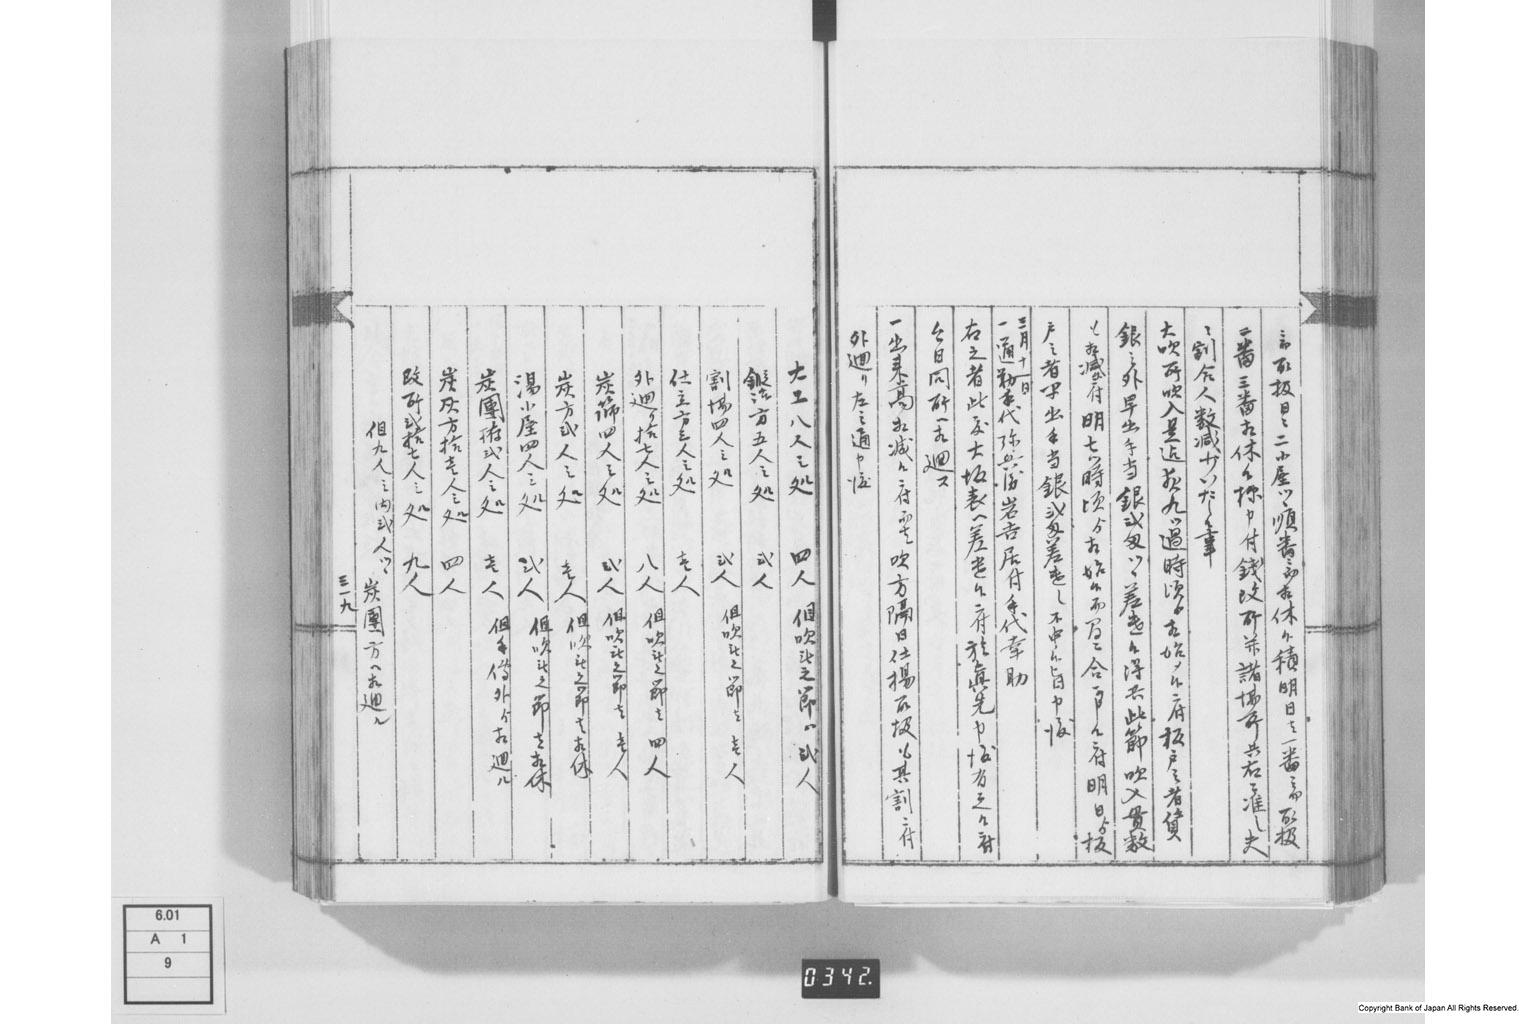 而取扱日々二小屋ツヽ順番ニ而相休候積明日者一番ニ而取扱
二番三番相休候様申付銭改所并諸場所共右ニ准し夫
々割合人数減少いたし候事
大吹所吹入是迄夜九ツ過時頃ゟ相始メ候ニ付板戸之者賃
銀之外早出手当銀弐匁ツヽ差遣候得共此節吹入貫数
も相減候付明七ツ時頃ゟ相始候而間ニ合可申候ニ付明日ゟ板
戸之者早出手当銀弐匁差遣し不申候旨申渡
三月十一日
一通勤手代弥兵衛岩吉居付手代幸助
右之者此度大坂表へ差遣候ニ付於真先申渡有之候ニ付
今日同所へ相廻ス
一出来高相減候ニ付而者吹方隔日仕揚取扱も其割ニ付
外廻り左之通申渡
大工八人之処 四人 但吹立之節ハ弐人
鍛冶方五人之処 弐人
割場四人之処 弐人 但吹立之節者壱人
仕立方三人之処 壱人
外廻り拾七人之処 八人 但吹立之節者四人
炭篩四人之処 弐人 但吹立之節者壱人
炭方弐人之処 壱人 但吹立之節者相休
湯小屋四人之処 弐人 但吹立之節者相休
炭團拵弐人之処 壱人 但手傳外ゟ相廻ル
炭灰方拾壱人之処 四人
改所弐拾七人之処 九人
但九人之内弐人ツヽ炭團方へ相廻ル
三一九
6.01
A 1
9
0342.
Copyright Bank of Japan All Rights Reserved.